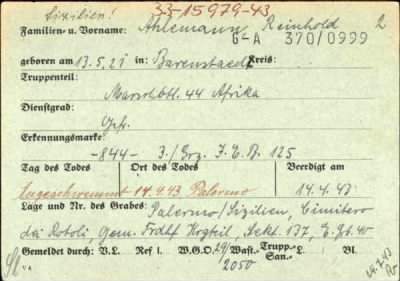 Sizilien!
33-15979-43
2
Familien- u. Vorname: Ahlemann Reinhold
G-A 370/0999
geboren am 13.5.21 in: Barenstaedt Kreis:
Truppenteil:
Marschbtl. 44 Afrika
Dienstgrad:
Gefr.
Erkennungsmarke:
-844- 3./Grz. I.E.B. 125
Tag des Todes Ort des Todes Beerdigt am
angeschwemmt 14.4.43 Palermo 14.4.43
Lage und Nr. des Grabes: Palermo/Sizilien, Cimitero
dei Rotoli, Gem. Frdhf Sekt. 137, E.gb. 40
Gemeldet durch: V.L. Ref I. W.G.O. 29/2050 Wast.- Trupp.- San.- L. Bl.
V 6